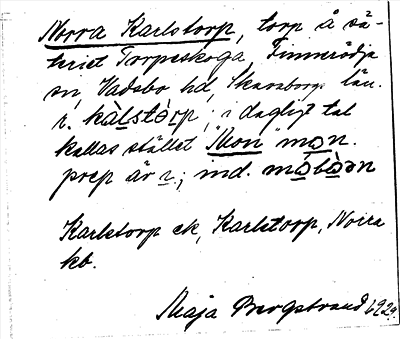 Norra Karlstorp, torp å sä-
teriet Torpeskoga Finnerödja
sn, Vadsbo hd, Skaraborgs län.
r. kàlstòrp; i dagligt tal
kallas stället "Mon" mon.
prep är r.; md. mòbòən
Karlstorp ek, Karlstorp, Norra
kb.
Maja Bergstrand 1929.